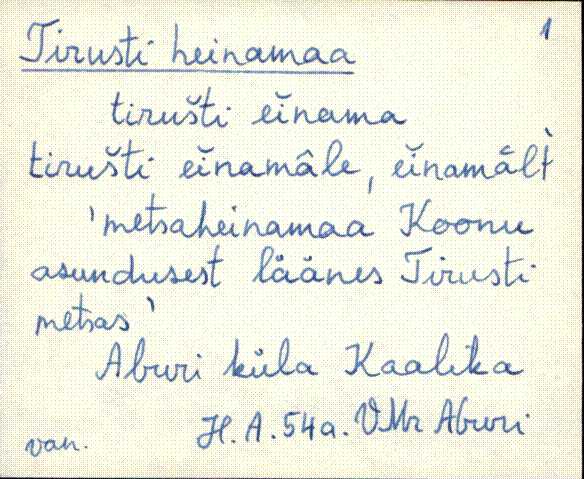 1
Tirusti heinamaa
tirušti eĭnama
tirušti eĭnamâle, eĭnamâlt̀
'metsaheinamaa Koonu
asundusest läänes Tirusti
metsas'
Aburi küla Kaalika
van. H. A. 54a. VMr Aburi